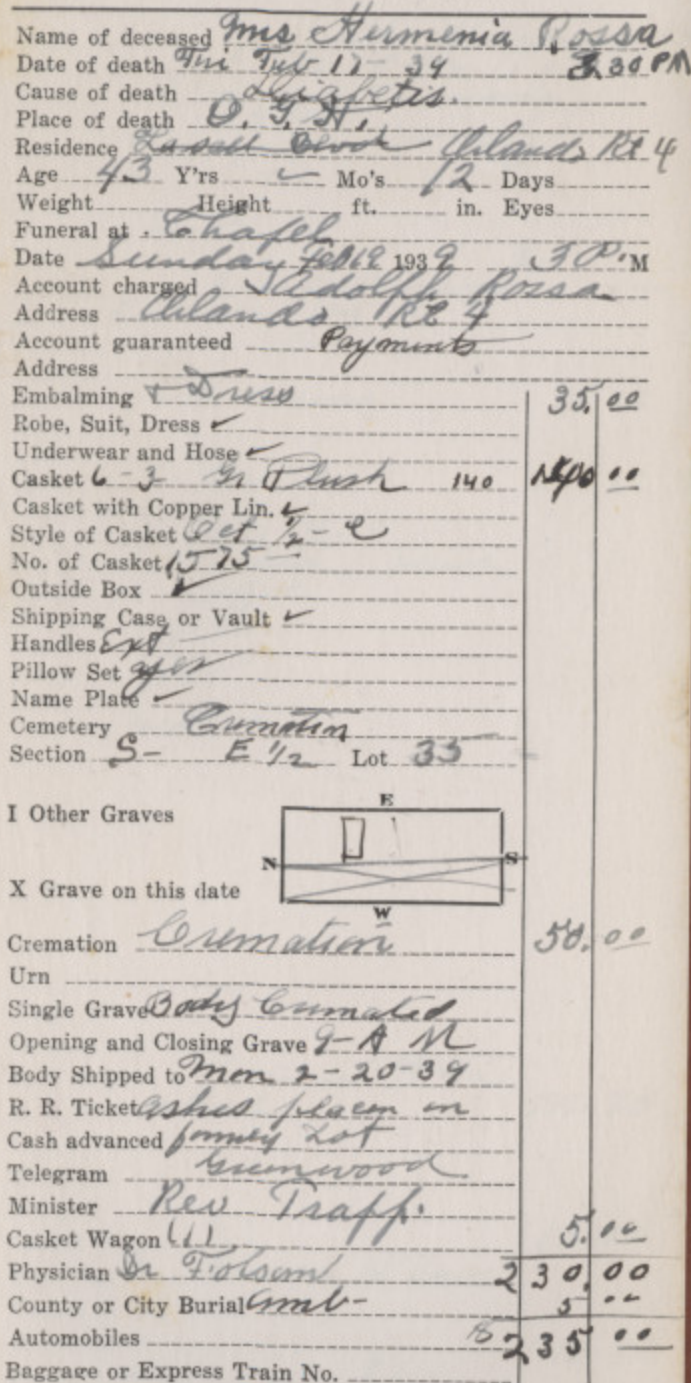 Name of deceased Mrs Hermenia Rossa
Date of death Fri Feb 17 - 39 3.30 PM
Cause of death Diabetis.
Place of death O. G. H.
Residence Orlando Rt 4
Age 43 Y'rs ✓ Mo's 12 Days
Weight Height ft. in. Eyes
Funeral at Chapel
Date Sunday Feb 19 1939 3 P. M
Account charged Adolph Rossa
Address Orlando Rt 4
Account guaranteed Payments
Address
Embalming + Dress 35.00
Robe, Suit, Dress ✓
Underwear and Hose ✓
Casket 6-3 Gr Plush 140 140 00
Casket with Copper Lin. ✓
Style of Casket Oct 1/2 - C
No. of Casket 1575
Outside Box ✓
Shipping Case or Vault ✓
Handles Ext
Pillow Set yes
Name Plate ✓
Cemetery Cremation
Section S- E 1/2 Lot 35
E
I Other Graves
N S
X Grave on this date
W
Cremation Cremation 50.00
Urn
Single Grave Body Cremated
Opening and Closing Grave 9-A M
Body Shipped to Mon 2-20-39
R. R. Ticket ashes placen in
Cash advanced fomiey Lot
Telegram Greenwood
Minister Rev Trapp.
Casket Wagon 5.00
Physician Dr Folsom 230.00
County or City Burial Amb- 5 00
Automobiles 235 00
Baggage or Express Train No.